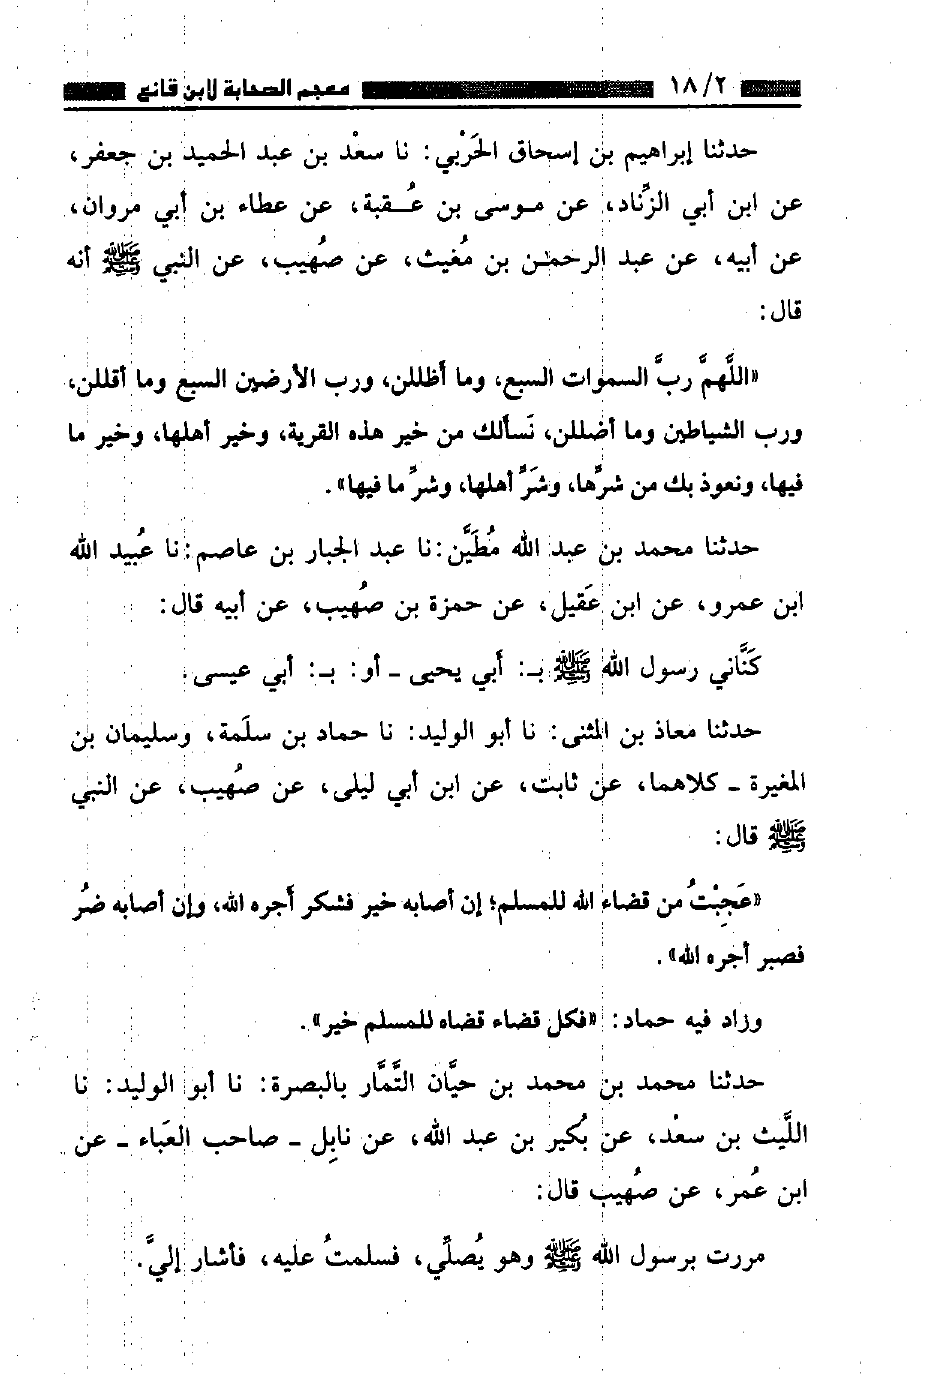 ١٨/٢ معجم الصحابة لابن قانع
حدثنا إبراهيم بن إسحاق الحَرْبي: نا سعْد بن عبد الحميد بن جعفر،
عن ابن أبي الزِّناد، عن موسى بن عُقبة، عن عطاء بن أبي مروان،
عن أبيه، عن عبد الرحمٰن بن مُغيث، عن صُهيب، عن النبي ﷺ أنه
قال:
«اللَّهمَّ ربَّ السمٰوات السبع، وما أظللن، ورب الأرضين السبع وما أقللن،
ورب الشياطين وما أضللن، نَسألك من خير هذه القرية، وخير أهلها، وخير ما
فيها، ونعوذ بك من شرِّها، وشَرِّ أهلها، وشرِّ ما فيها».
حدثنا محمد بن عبد الله مُطَيَّن: نا عبد الجبار بن عاصم: نا عُبيد الله
ابن عمرو، عن ابن عَقيل، عن حمزة بن صُهيب، عن أبيه قال:
كَنَّاني رسول الله ﷺ بـ: أَبي يحيى ـ أو: بـ: أبي عيسى.
حدثنا معاذ بن المثنى: نا أبو الوليد: نا حماد بن سلَمة، وسليمان بن
المغيرة ـ كلاهما، عن ثابت، عن ابن أبي ليلى، عن صُهيب، عن النبي
ﷺ قال:
«عَجِبْتُ من قضاء الله للمسلم؛ إن أصابه خير فشكر أَجره الله، وإن أصابه ضُر
فصبر أجره الله».
وزاد فيه حماد: «فكل قضاء قضاه للمسلم خير».
حدثنا محمد بن محمد بن حيَّان التَّمَّار بالبصرة: نا أبو الوليد: نا
اللَّيث بن سعْد، عن بُكير بن عبد الله، عن نابِل ـ صاحب العَباء ـ عن
ابن عُمر، عن صُهيب قال:
مررت برسول الله ﷺ وهو يُصلِّي، فسلمتُ عليه، فأشار إليَّ.